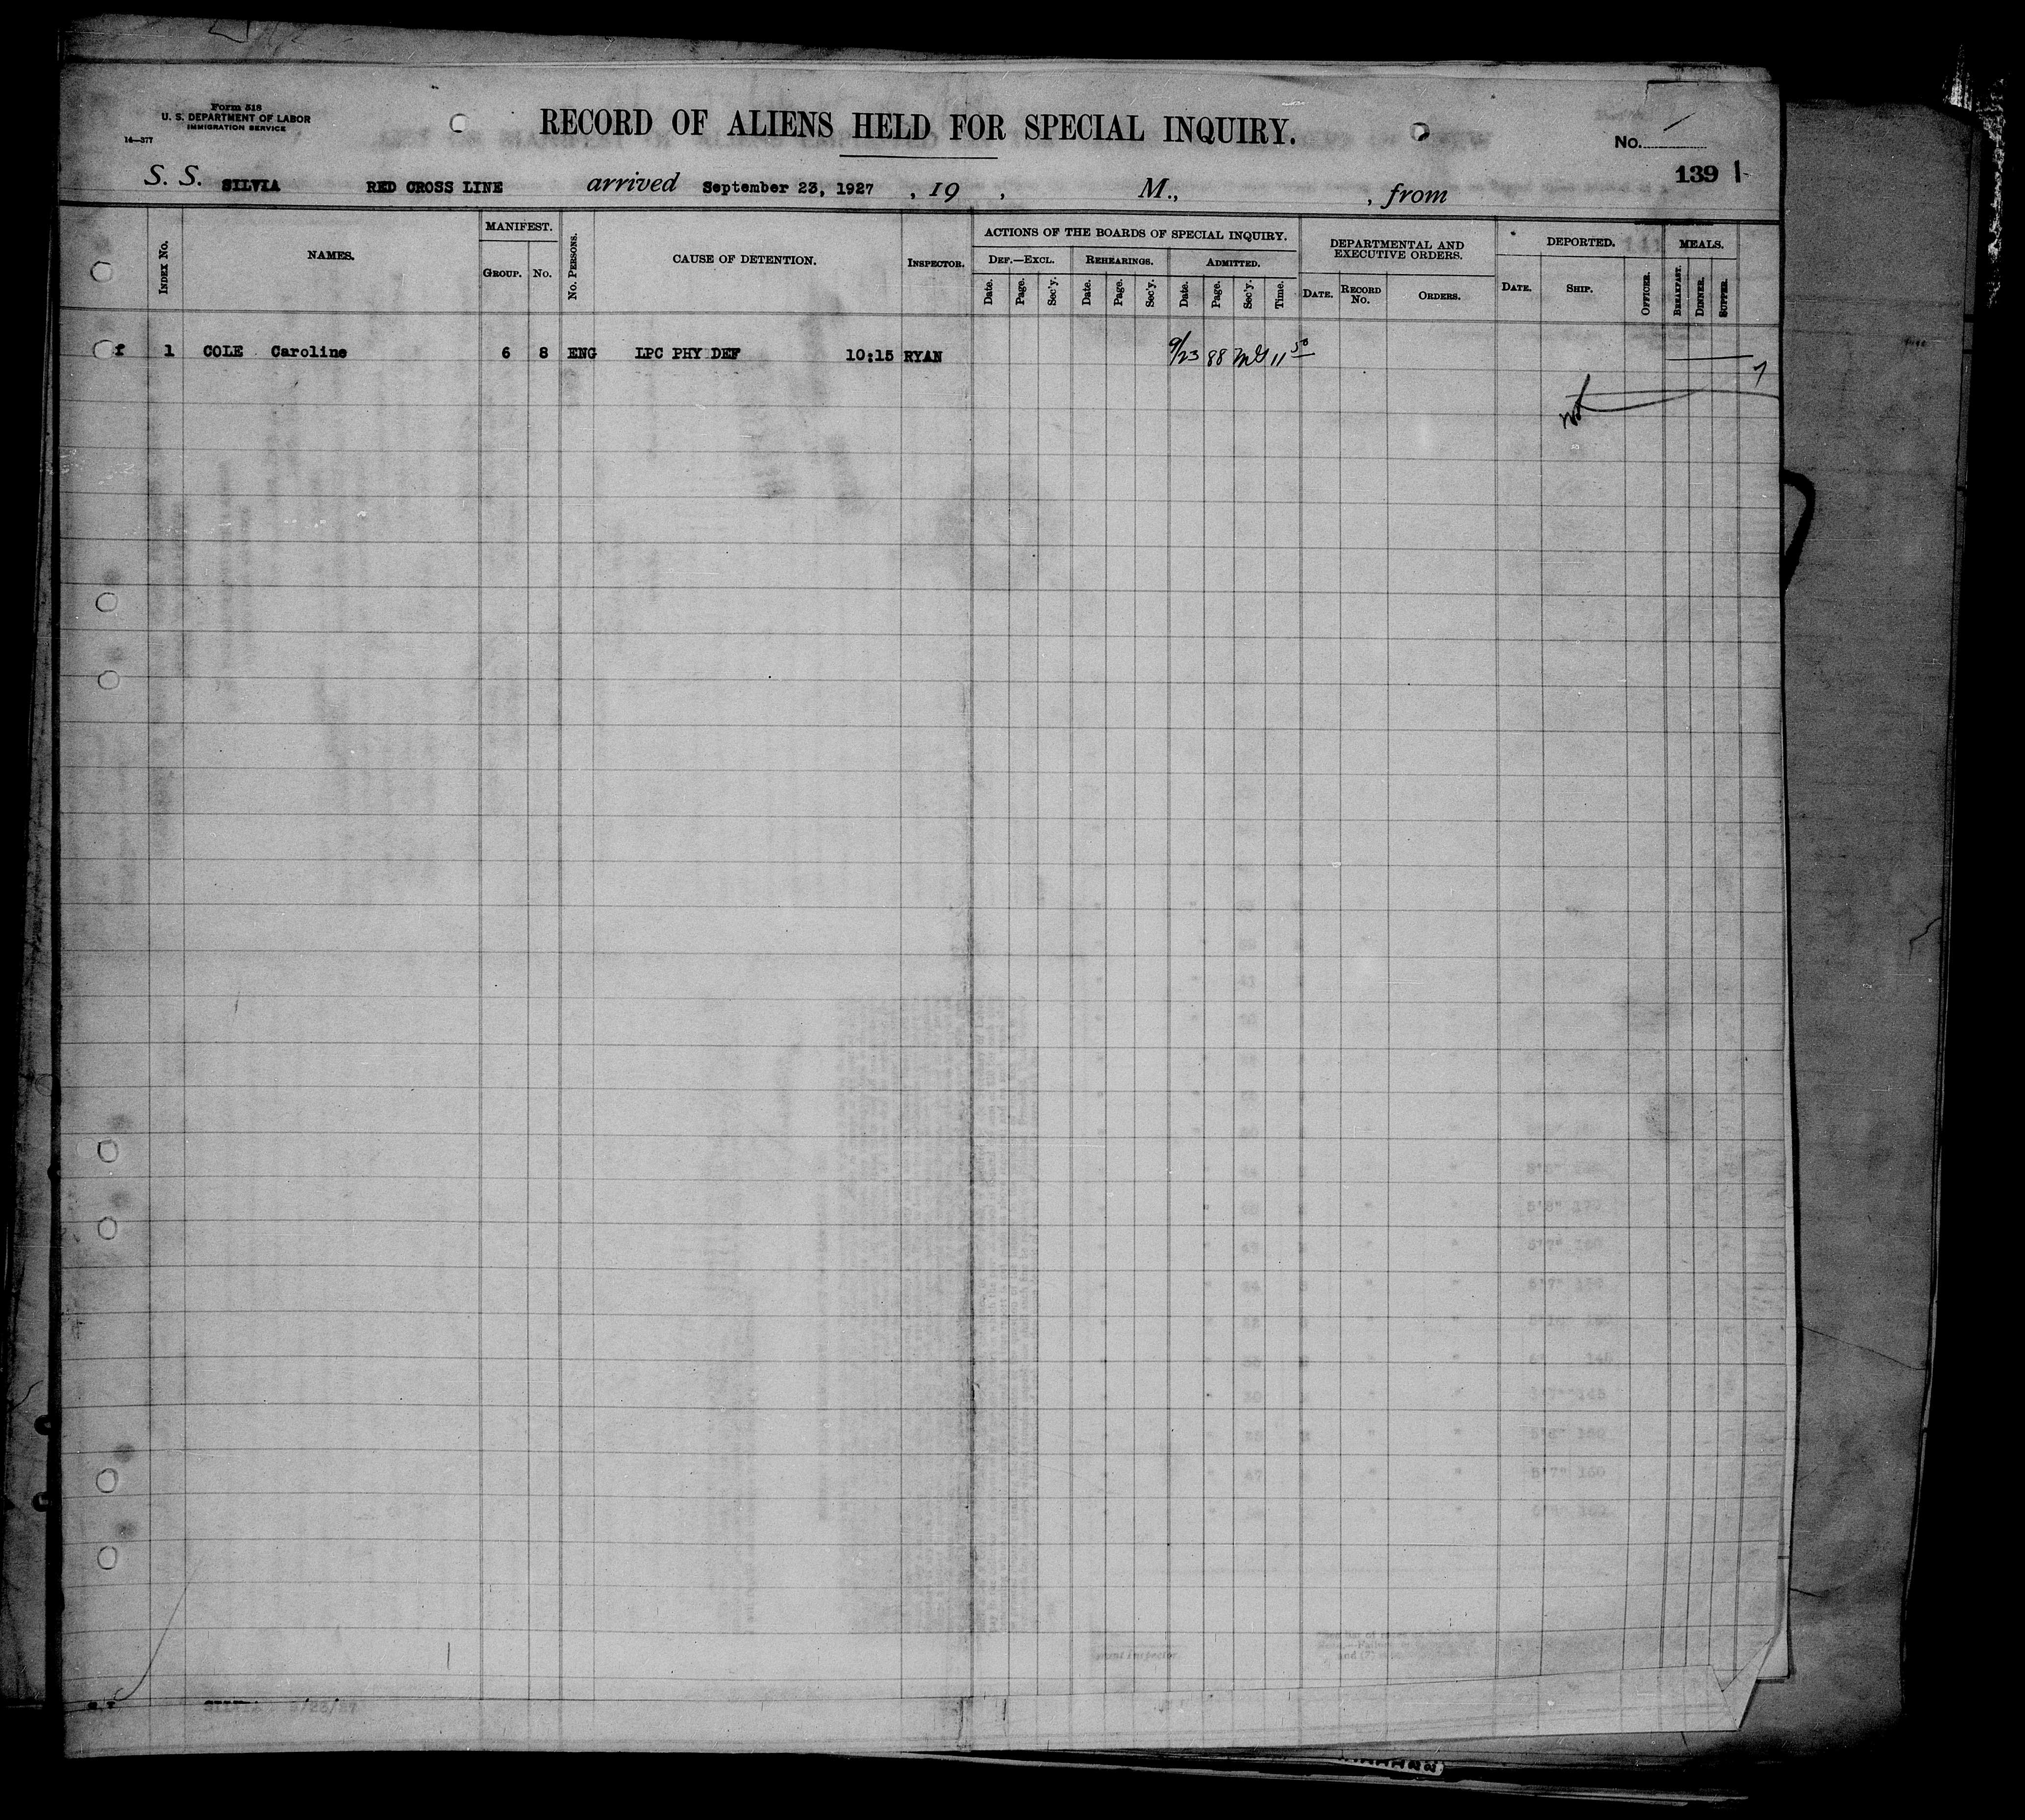 Form 518
U. S. DEPARTMENT OF LABOR
IMMIGRATION SERVICE
14—377
RECORD OF ALIENS HELD FOR SPECIAL INQUIRY.
No.
139
S. S. SILVIA RED CROSS LINE arrived September 23, 1927 , 19 , M., , from
INDEX No. NAMES. MANIFEST. GROUP. No. No. PERSONS. CAUSE OF DETENTION. INSPECTOR.
ACTIONS OF THE BOARDS OF SPECIAL INQUIRY.
DEF.—EXCL. REHEARINGS. ADMITTED.
Date. Page. Sec'y. Date. Page. Sec'y. Date. Page. Sec'y. Time.
DEPARTMENTAL AND EXECUTIVE ORDERS.
DATE. RECORD No. ORDERS.
DEPORTED.
DATE. SHIP. OFFICER.
MEALS.
BREAKFAST. DINNER. SUPPER.
f 1 COLE Caroline 6 8 ENG LPC PHY DEF 10:15 RYAN 9/23 88 11 50